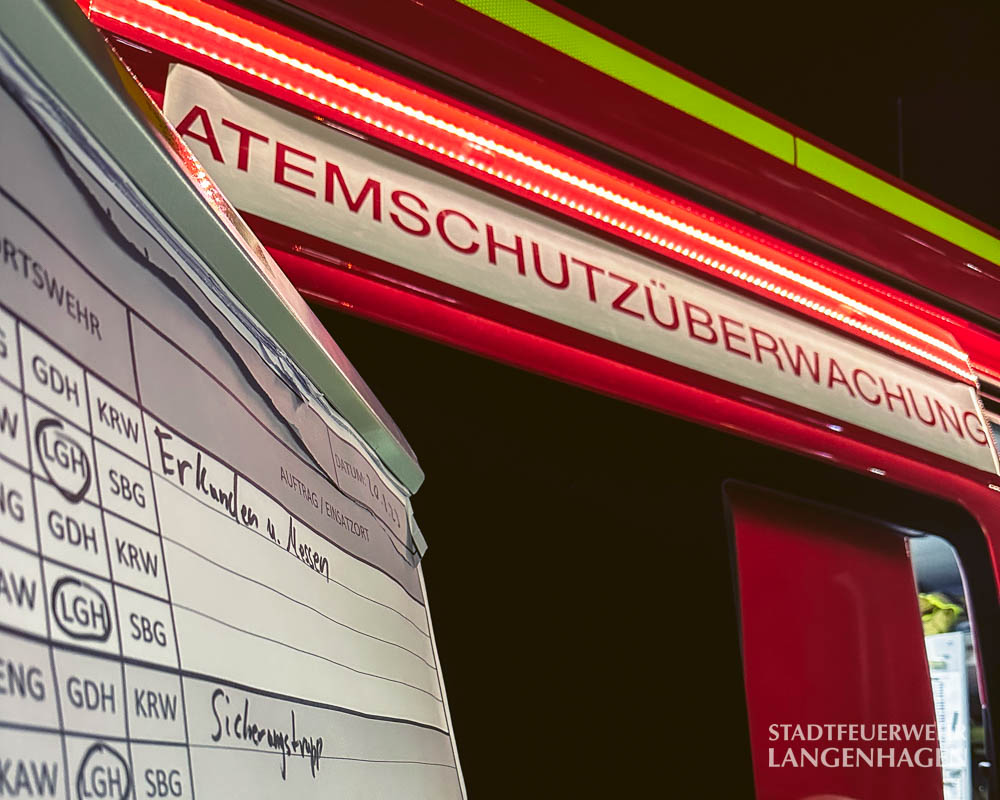 ATEMSCHUTZÜBERWACHUNG
ORTSWEHR
DATUM:
AUFTRAG / EINSATZORT
GDH KRW
Erkunden u. Messen
LGH SBG
ENG GDH KRW
KAW LGH SBG
ENG GDH KRW
Sicherungstrupp
KAW LGH SBG
STADTFEUERWEHR
LANGENHAGEN